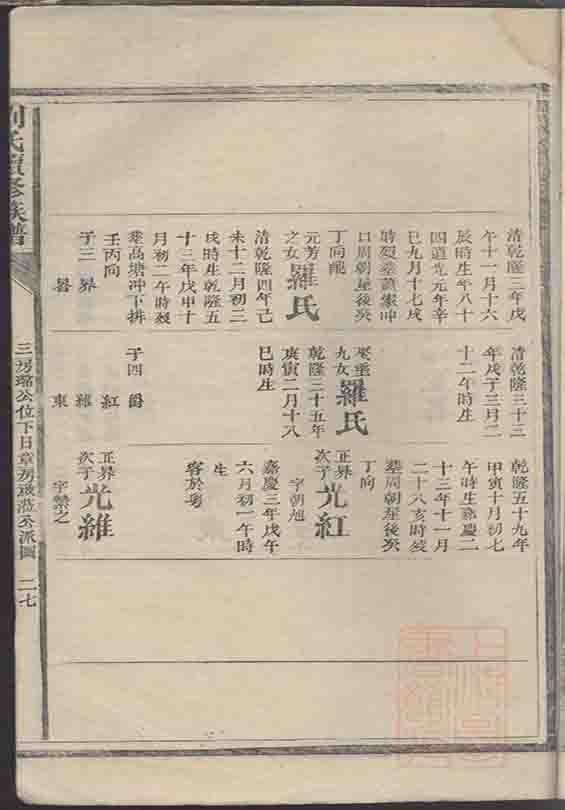 清乾隆三年戊
午十一月十六
辰時生年八十
四道光元年辛
巳九月十七戌
時歿葬蕭家冲
口周朝屋後癸
丁向配
元芳
之女羅氏
清乾隆四年己
未十二月初二
戌時生乾隆五
十三年戊申十
月初二午時歿
葬高塘冲下排
壬丙向
子三 界
清乾隆三十三
年戊子三月二
十二午時生
娶重
九女羅氏
乾隆三十五年
庚寅二月十八
巳時生
子四 爵
紅
維
東
乾隆五十九年
甲寅十月初七
午時生嘉慶二
十三年十一月
二十八亥時歿
葬周朝屋後癸
丁向
正界
次子光紅
字朝旭
嘉慶三年戊午
六月初一午時
生
客於粵
正界
次子光維
字榮之
劉氏續修族譜
三房 公位下日章房 公派圖
二七